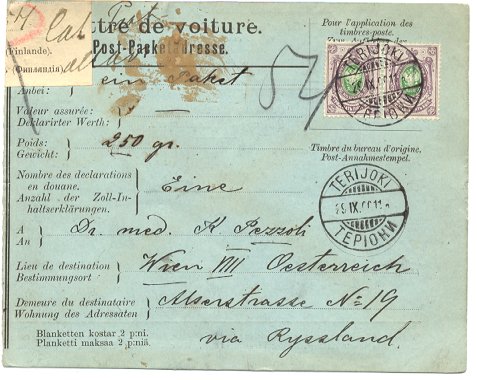 ttre de voiture.
Post-Packet-Adresse.
Pour l'application des
timbres-poste.
(Finlande).
(Финляндія)
ein Paket
Anbei:
Valeur assurée:
Deklarirter Werth:
Poids:
Gewicht:
250 gr.
Timbre du bureau d'origine.
Post-Annahmestempel.
Nombre des declarations
en douane.
Anzahl der Zoll-In-
haltserklärungen.
Eine
TERIJOKI
TERIJOKI
ТЕРІОКИ
A
An
Dr. med. K Pezzoli
Lieu de destination
Bestimmungsort
Wien VIII Oesterreich
Demeure du destinataire
Wohnung des Adressaten
Alserstrasse No 19
Blanketten kostar 2 p:ni.
Planketti maksaa 2 p:niä.
via Ryssland.